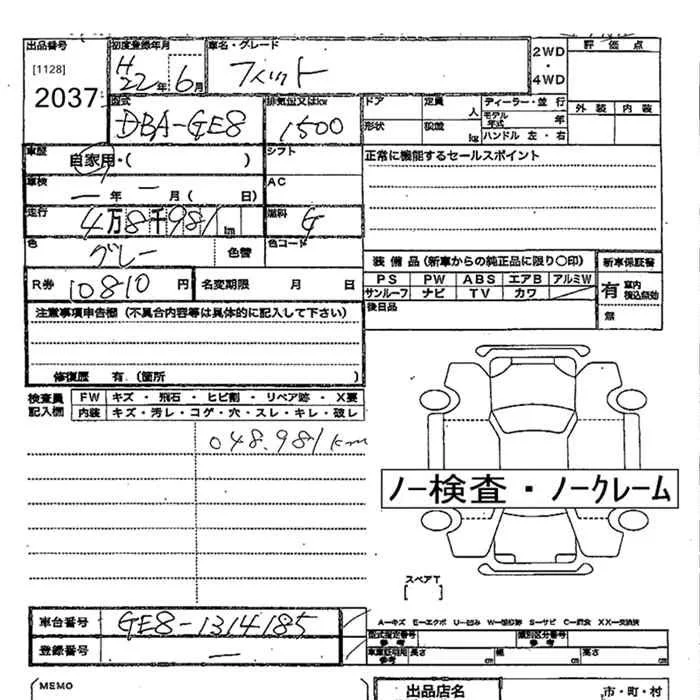 出品番号
[1128]
2037
初度登録年月
H22年6月
車名・グレード
フィット
2WD
・
4WD
評価点
外装 内装
型式
DBA-GE8
排気量又はkw
1500
ドア
定員
人
ディーラー・並行
モデル年式
年
形状
積載
kg
ハンドル 左・右
車歴
自家用・( )
シフト
正常に機能するセールスポイント
車検
ー年ー月(日)
AC
走行
4万8千981km
燃料
G
色
グレー
色替
色コード
R券 10810円
名変期限 月 日
装備品(新車からの純正品に限り○印)
新車保証書
PS PW ABS エアB アルミW
サンルーフ ナビ TV カワ
有
無
後日品
注意事項申告欄(不具合内容等は具体的に記入して下さい)
修復歴 有(箇所 )
検査員記入欄
FW キズ・飛石・ヒビ割・リペア跡・X要
内装 キズ・汚レ・コゲ・穴・スレ・キレ・破レ
048.981km
ノー検査・ノークレーム
スペアT
[ ]
車台番号
GE8-1314185
登録番号
ー
型式指定番号
参考
類別区分番号
参考
長さ cm 幅 cm 高さ cm
MEMO
出品店名
市・町・村